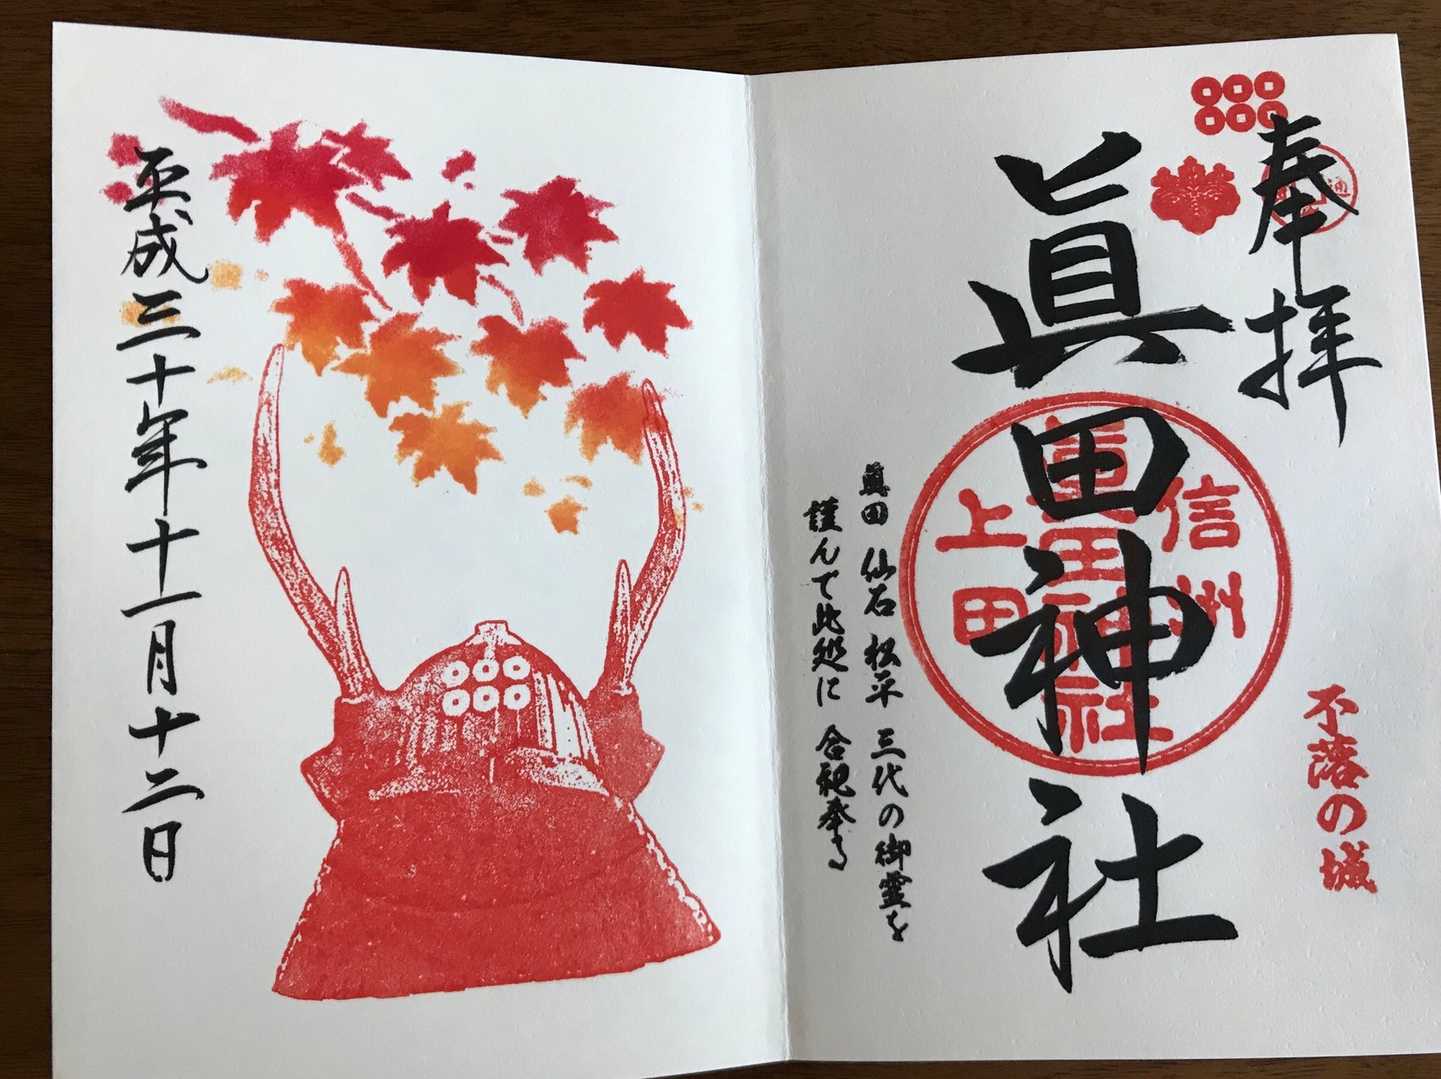 奉拝
不落の城
眞田神社
信州
眞田神社
上田
眞田 仙石 松平 三代の御霊を
謹んで此処に 合祀奉る
平成三十年十一月十二日